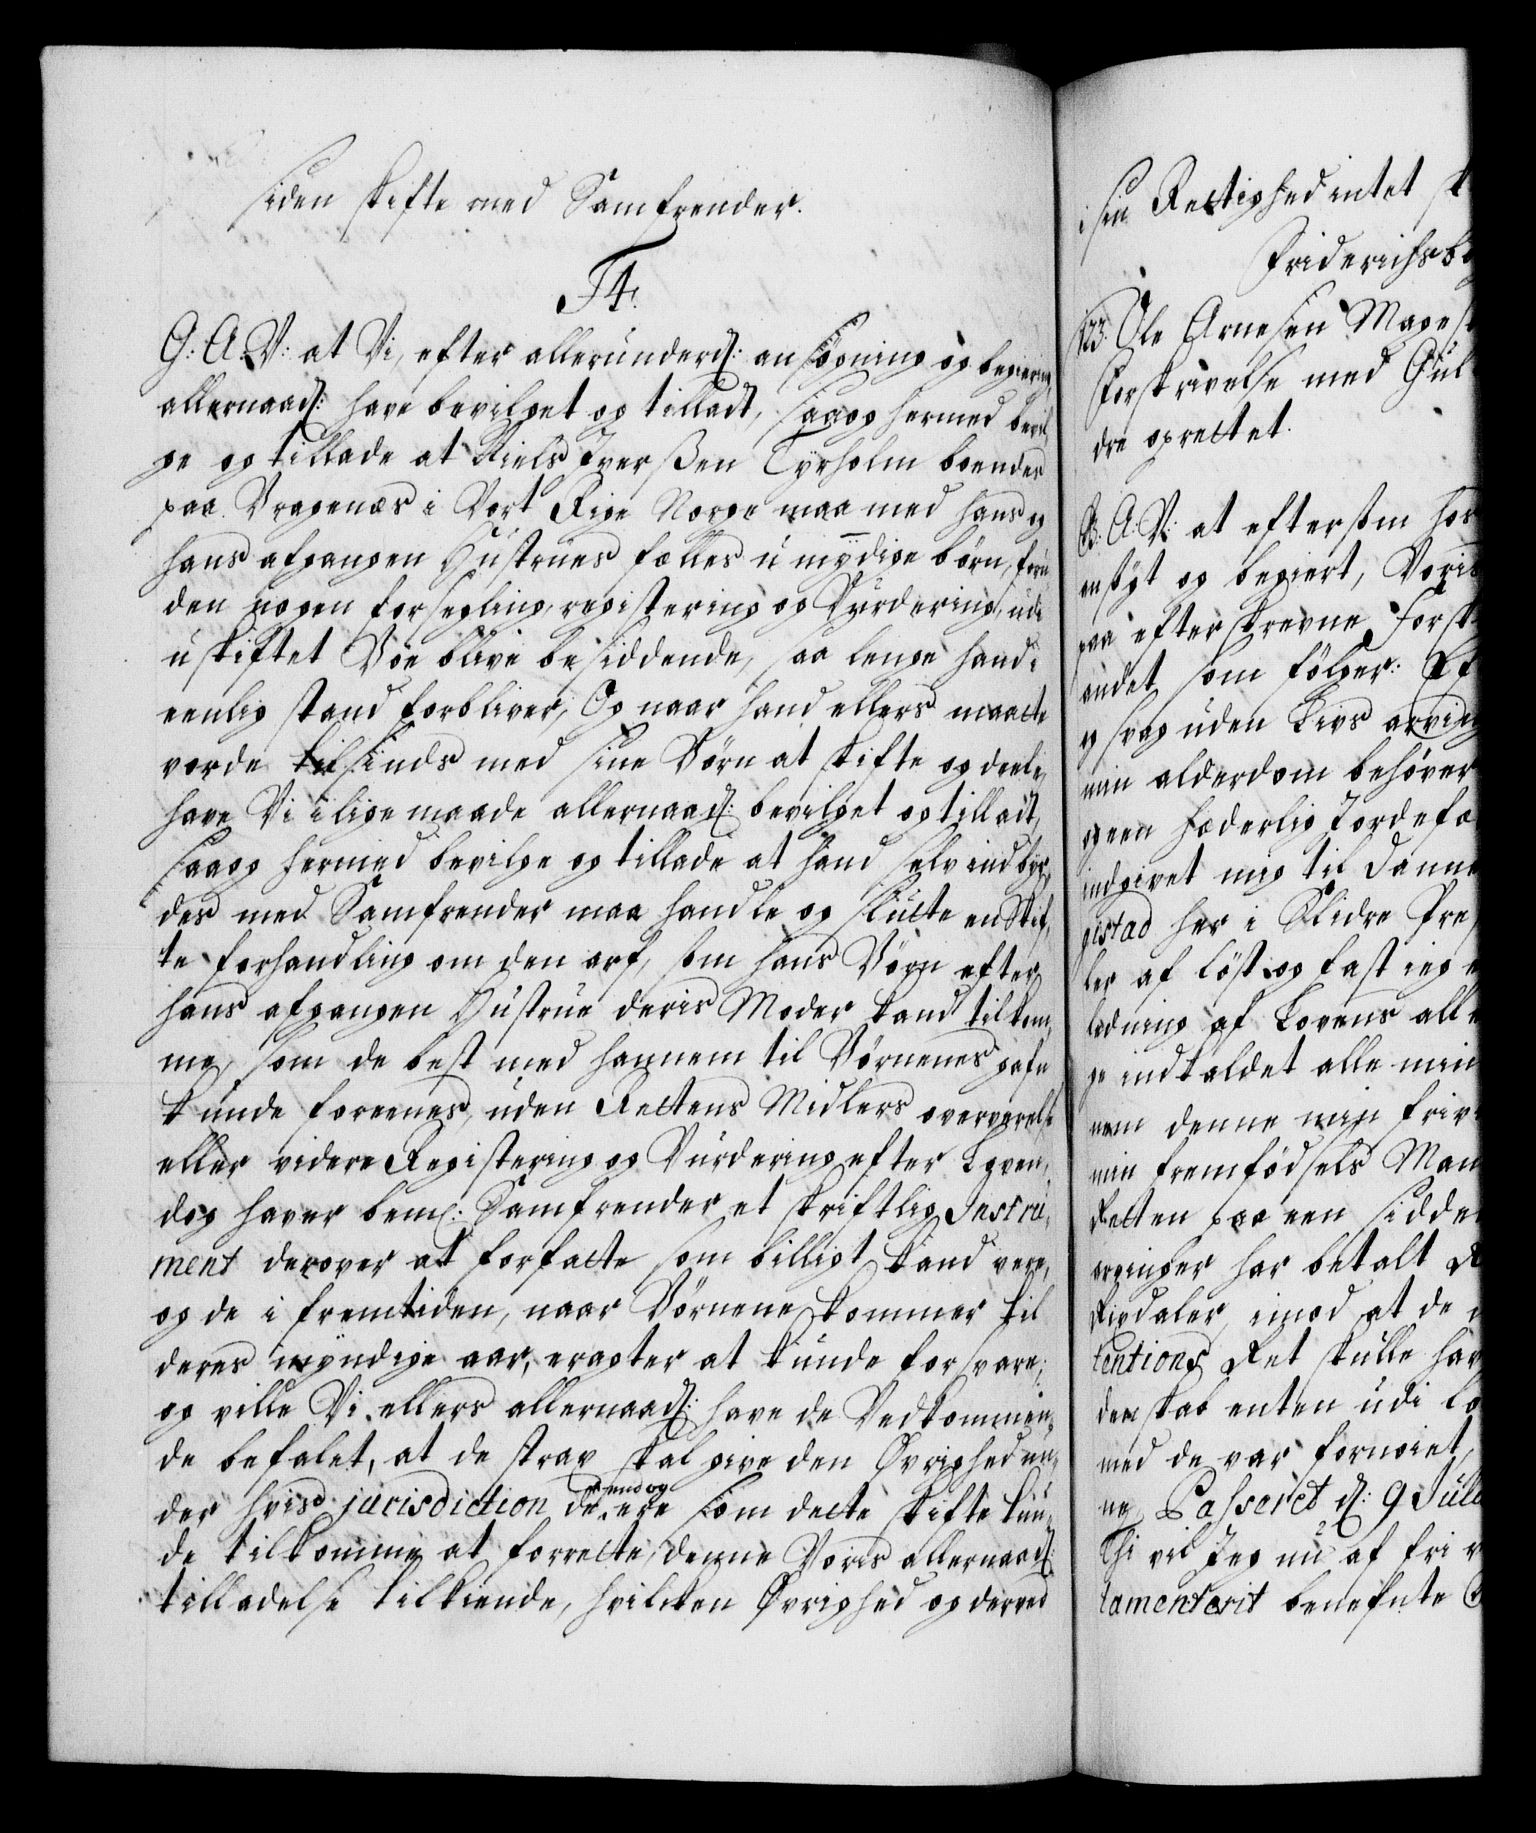 siden skifte med Samfrender.
F4.
G: A: V: at Vi, efter allerunderd: ansøgning og begiering,
allernaad: have bevilget og tilladt, saa og hermed bevil-
ge og tillade at Niels Iverssen Tyrholm boendes
paa Vragenæs i Vort Rige Norge maa med hans og
hans afgangen Hustrues fælles umÿdige børn, foru-
den nogen forsegling, registering og Vurdering, udi
uskiftet Boe blive besiddende, saa lenge hand i
eenlig stand forbliver, Og naar hand ellers maatte
vorde til sinds med sine Børn at skifte og deele,
have Vi i lige maade allernaad: bevilget og tilladt,
saa og hermed bevilge og tillade at hand selv indbyr-
des med Samfrender maa handle og slutte en Skif-
te forhandling om den arf, som hans Børn efter
hans afgangen Hustrue deris Moder kand tilkom-
me, som de best med hannem til Børnenes gafn
kunde foreenes, uden Rettens Midlers oververelse
eller videre Registering og Vurdering efter Loven,
dog haver bem: Samfrender et skriftlig Instru-
ment derover at forfatte som billigt kand vere,
og de i fremtiden, naar Børnene kommer til
deres myndige aar, eragter at kunde forsvare;
og ville Vi ellers allernaad: have de Vedkommen-
de befalet, at de strax skal give den Øvrighed un-
der hvis jurisdiction de ere som dette skifte kun-
de tilkomme at forrette, denne Voris allernaad:
tilladelse tilkiende, hvilken Øvrighed og derved
i sin Rettighed intet
Friderichsb
123. Ole Arnesen
Forskrivelse med Gul
dre oprettet.
B: A: V: at eftersom hos
ansøgt og begiert, Voris
paa efterskrevne Forsk
andet som følger:
og svag uden Livs arving
min alderdom behøver
og een hæderlig Jordefæ
indgivet mig til Danne
gistad her i Slidre Pre
ler af løst og fast ieg
ledning af Lovens all
ge indkaldet alle min
nem denne min friv
min fremfødsels Man
Retten paa een sidde
arvinger har betalt
Rixdaler, imod at de
tentions Ret skulle hav
denskab enten udi lø
med de var fornøiet,
ne, Passeret d: 9 Jul
Thi vil Jeg nu af fri v
tamenterit benefnte